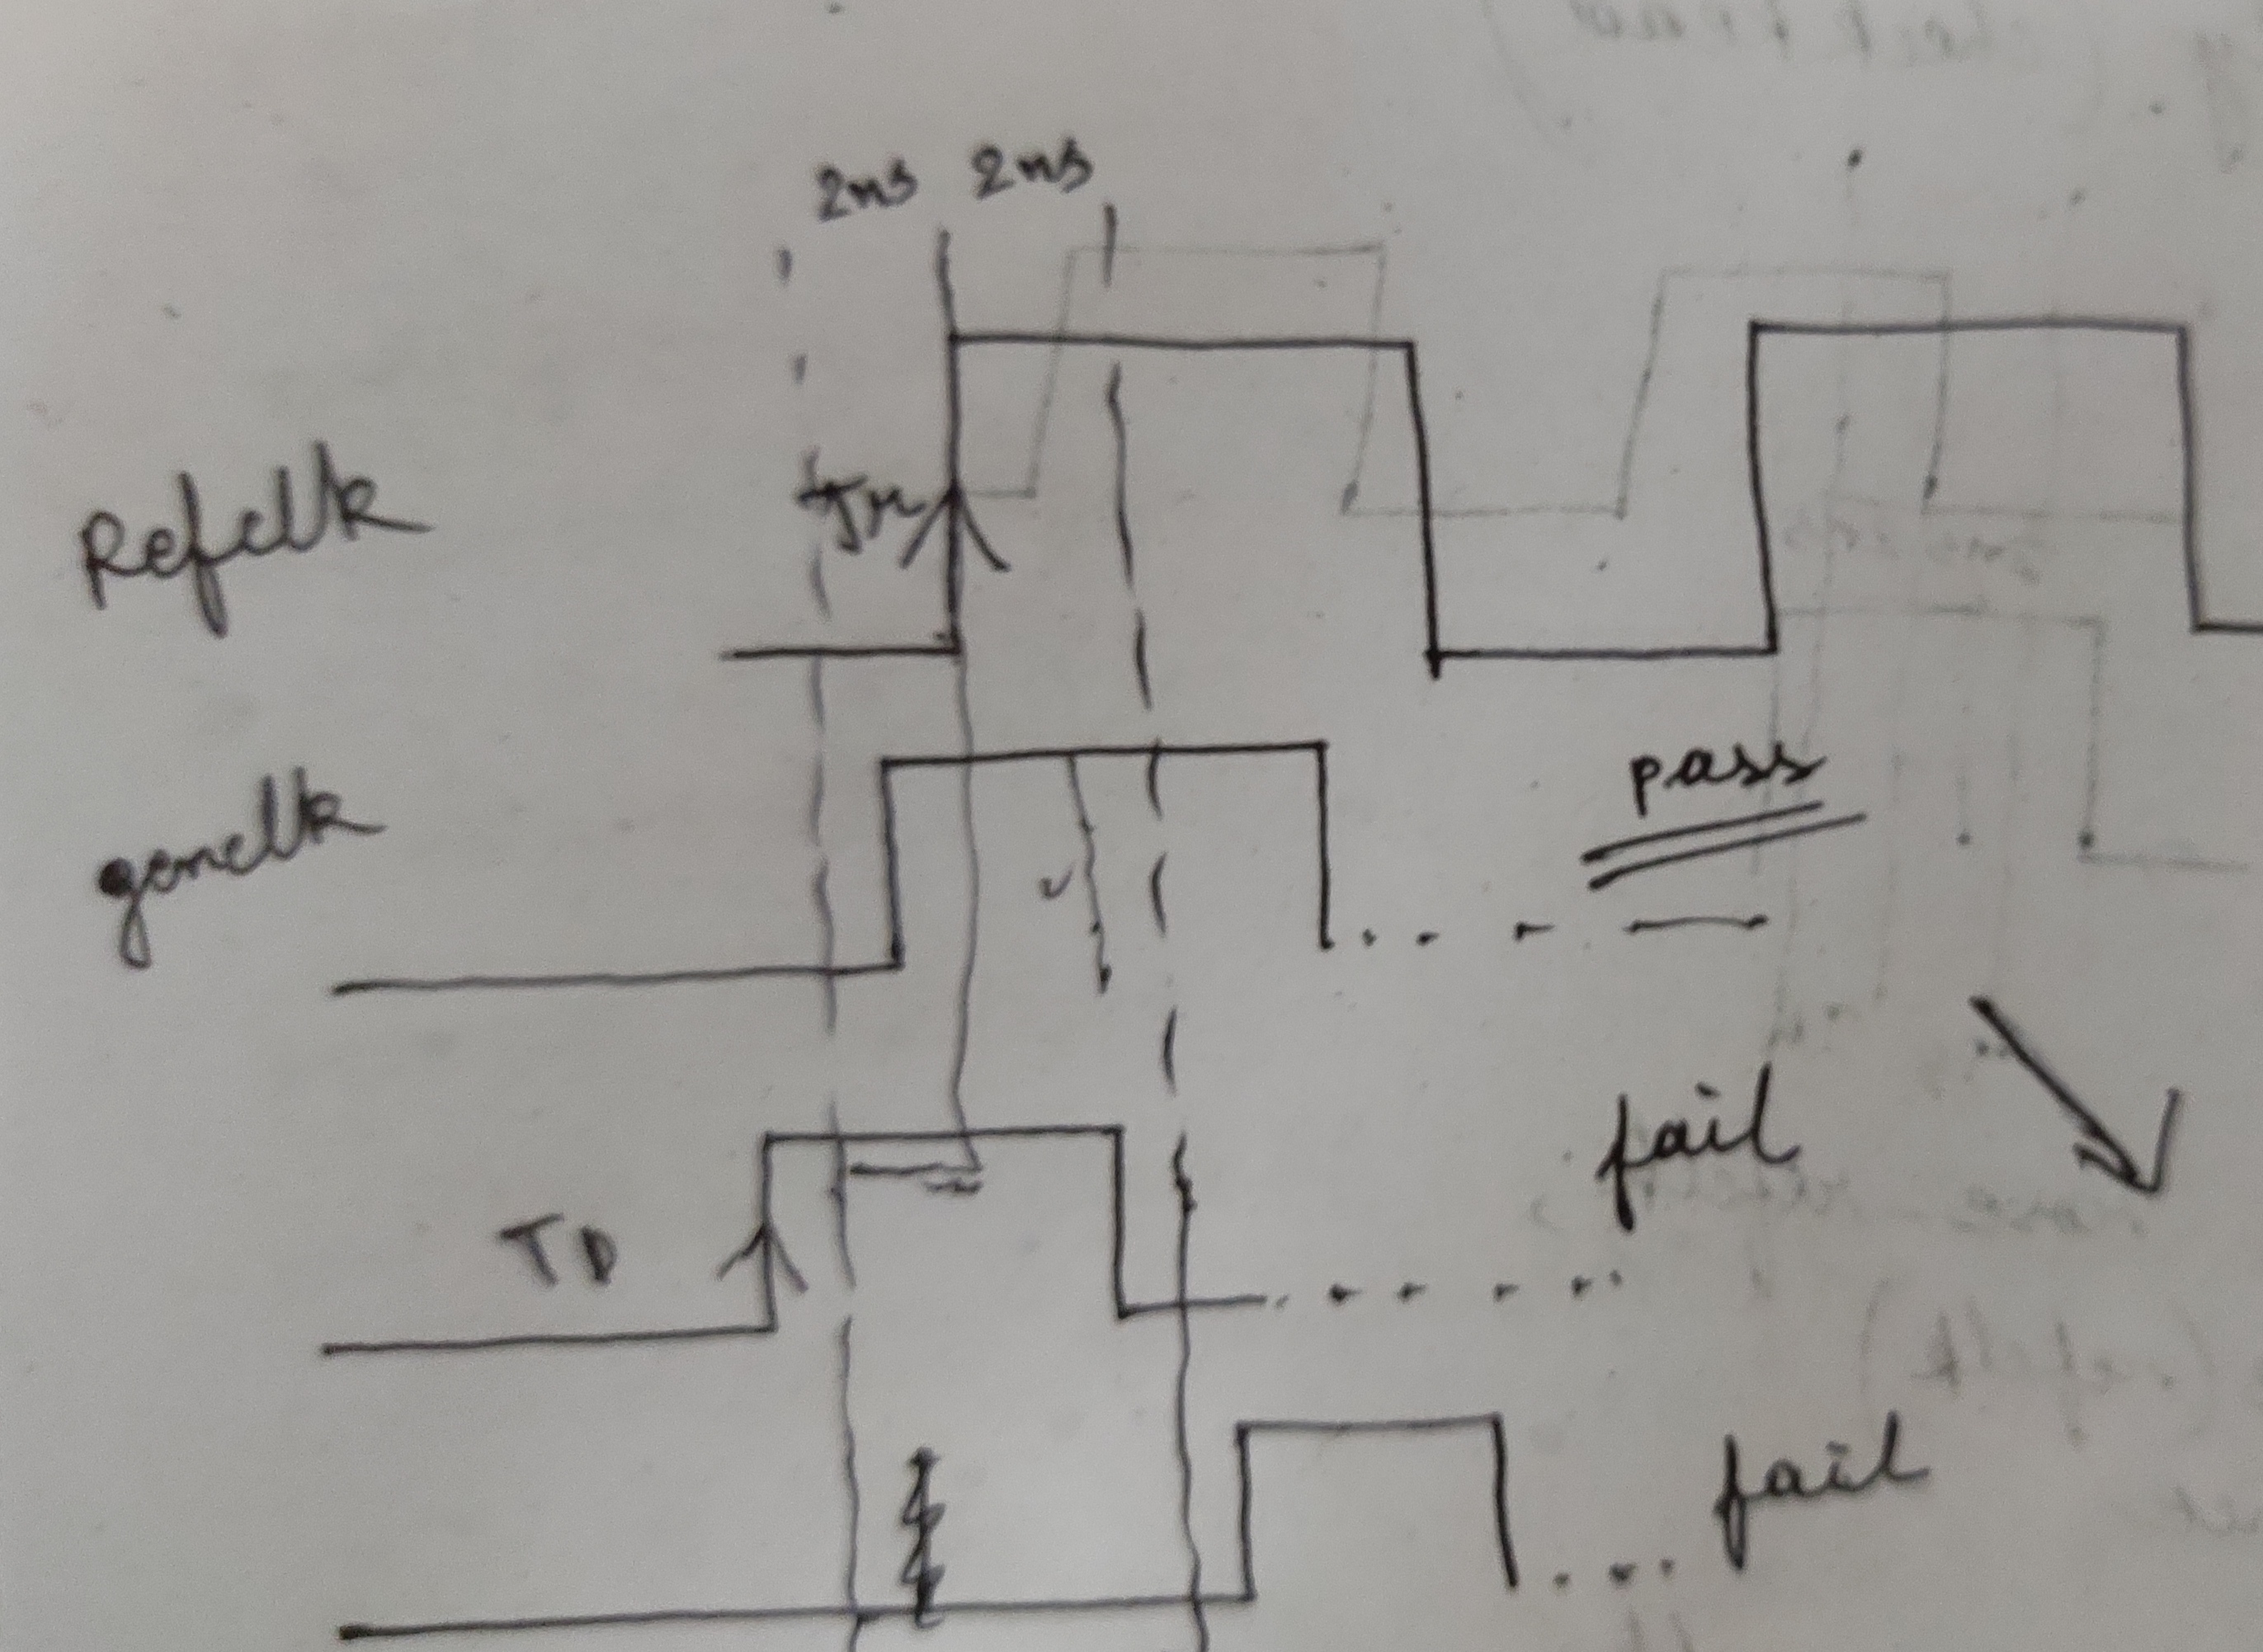 2ns 2ns
Refclk
genclk
pass
fail
TD
fail